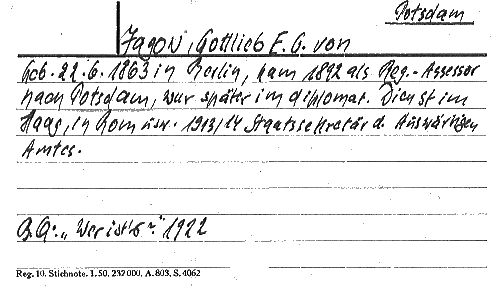 Potsdam
Jagow, Gottlieb E. G. von
Geb. 22. 6. 1863 in Berlin, kam 1892 als Reg.-Assessor
nach Potsdam, war später im diplomat. Dienst im
Haag, in Rom usw. 1913/14 Staatssekretär d. Auswärtigen
Amtes.
B.Q: „Wer ist's?" 1922
Reg. 10. Stichnote. I. 50. 232000. A. 803. S. 4062